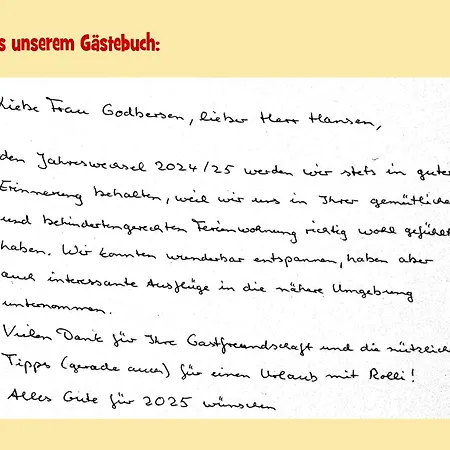 s unserem Gästebuch:
Liebe Frau Godbersen, lieber Herr Hansen,
den Jahreswechsel 2024/25 werden wir stets in guter
Erinnerung behalten, weil wir uns in Ihrer gemütliche
und behindertengerechten Ferienwohnung richtig wohl gefühlt
haben. Wir konnten wunderbar entspannen, haben aber
auch interessante Ausflüge in die nähere Umgebung
unternommen.
Vielen Dank für Ihre Gastfreundschaft und die nützliche
Tipps (gerade auch) für einen Urlaub mit Rolli!
Alles Gute für 2025 wünschen